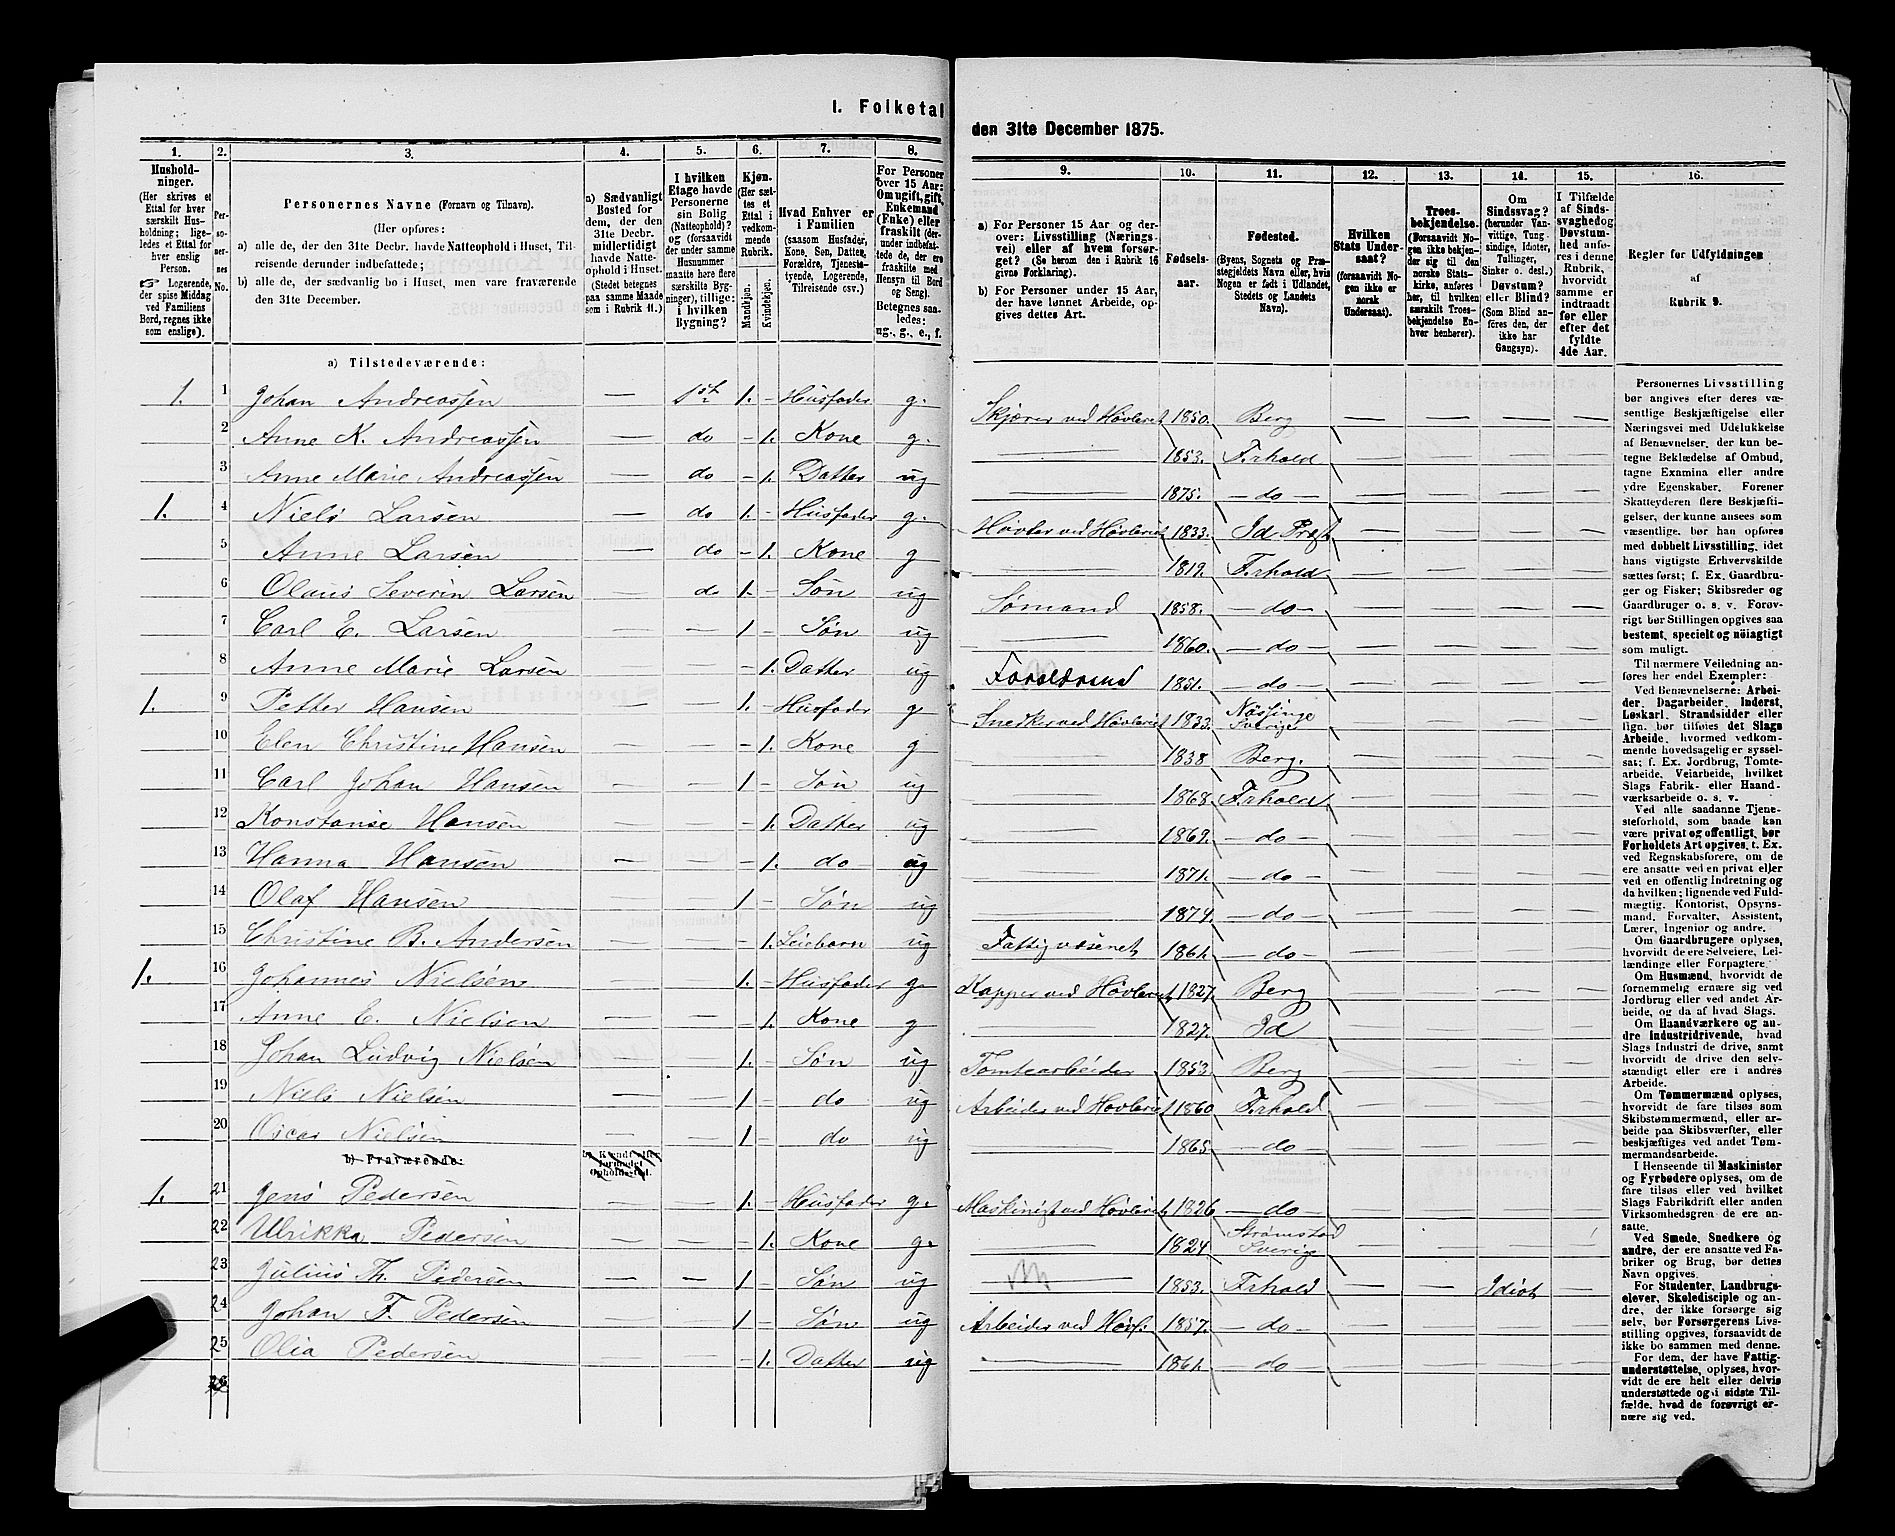 I. Folketal
den 31te December 1875.
1. 2. 3. 4. 5. 6. 7. 8. 9. 10. 11. 12. 13. 14. 15. 16.
Husholdninger.
(Her skrives et
Ettal for hver
særskilt Husholdning;
ligeledes et Ettal for
hver enslig
Person.
☞ Logerende,
der spise Middag
ved Familiens
Bord, regnes ikke
som enslige).
Personernes No.
Personernes Navne (Fornavn og Tilnavn).
(Her opføres:
a) alle de, der den 31te Decbr. havde Natteophold i Huset, Tilreisende derunder indbefattede;
b) alle de, der sædvanlig bo i Huset, men vare fraværende
den 31te December.
a) Sædvanligt
Bosted for
dem, der den
31te Decbr.
midlertidigt
havde Natteophold i Huset.
(Stedet betegnes
paa samme Maade
som i Rubrik 11.)
I hvilken
Etage havde
Personerne
sin Bolig
(Natteophold)?
og (forsaavidt
der under samme
Husnummer
maatte høre flere
særskilte Bygninger), tillige:
i hvilken
Bygning?
Kjøn.
(Her sættes et
Ettal i
vedkommende
Rubrik.
Mandkjøn.
Kvindekjøn.
Hvad Enhver er
i Familien
(saasom Husfader,
Kone, Søn, Datter,
Forældre, Tjenestetyende, Logerende,
Tilreisende osv.)
For Personer
over 15 Aar:
Om ugift, gift,
Enkemand
(Enke) eller
fraskilt (derunder indbefattede, de, ere
fraskilte med
Hensyn til Bord
og Seng).
Betegnes saaledes:
ug., g., e., f.
a) For Personer 15 Aar og derover: Livsstilling (Næringsvei) eller af hvem forsørget? (Se herom den i Rubrik 16
givne Forklaring).
b) For Personer under 15 Aar,
der have lønnet Arbeide, opgives dettes Art.
Fødselsaar.
Fødested.
(Byens, Sognets og Præstegjeldets Navn eller, hvis
Nogen er født i Udlandet,
Stedets og Landets
Navn).
Hvilken
Stats Undersaat?
(forsaavidt Nogen ikke er
norsk
Undersaat).
Troesbekjendelse.
(Forsaavidt Nogen ikke bekjender sig til den
norske Statskirke, anføres
her, til hvilken
særskilt Troesbekjendelse Enhver henhører).
Om
Sindssvag?
(herunder Vanvittige, Tungsindige, Idioter,
Tullinger,
Sinker o. desl.)
Døvstum?
eller Blind?
(Som Blind anføres den, der
ikke har
Gangsyn).
I Tilfælde
af Sindssvaghed og
Døvstumhed anføres i denne
Rubrik,
hvorvidt
samme er
indtraadt
før eller
efter det
fyldte
4de Aar.
Regler for Udfyldningen
af
Rubrik 9.
a) Tilstedeværende:
1. 1 Johan Andreassen — 1st 1. – Husfader g. Skjærer ved Høvleriet 1850. Berg — — — —
2 Anne K. Andreassen — do – 1. Kone g. — 1853. Frhald — — — —
3 Anne Marie Andreassen — do – 1. Datter ug — 1875. — do — — — — —
1. 4 Niels Larsen — do 1. – Husfader g. Høvler ved Høvleriet 1833. Id Præst. — — — —
5 Anne Larsen — do – 1. Kone g — 1819. Frhald — — — —
6 Olaus Severin Larsen — do 1. – Søn ug Sømand 1858. — do — — — — —
7 Carl E. Larsen — — 1 – Søn ug — 1860. — do — — — — —
8 Anne Marie Larsen — — – 1. Datter ug 1851. — do — — — — —
1. 9 Petter Hansen — — 1. – Husfader g Snedker ved Høvleriet 1833. Nössinge Sverige — — — —
10 Elen Christine Hansen — — – 1. Kone g — 1838 Berg. — — — —
11 Carl Johan Hansen — — 1 – Søn ug — 1868 Frhald — — — —
12 Konstanse Hansen — — – 1. Datter ug — 1869. — do — — — — —
13 Hanna Hansen — — – 1. do ug — 1871. — do — — — — —
14 Olaf Hansen — — 1 – Søn ug — 1874. — do — — — — —
15 Christine B. Andersen — — – 1. Leiebarn ug Fattigvæsenet 1861. — do — — — — —
1. 16 Johannes Nielsen — — 1. – Husfader g. Kapper ved Høvleriet 1827. Berg — — — —
17 Anne E. Nielsen — — – 1. Kone g — 1827. Id — — — —
18 Johan Ludvig Nielsen — — 1. – Søn ug Tomtearbeider 1853. Berg — — — —
19 Niels Nielsen — — 1 – do ug Arbeider ved Høvleriet 1860 Frhald — — — —
20 Oscar Nielsen — — 1 – do ug — 1865 — do — — — — —
b) Fraværende: b) Kendt eller
formodet
Opholdssted.
1. 21 Jens Pedersen — — 1. – Husfader g. Maskinist ved Høvleriet 1826 — do — — — — —
22 Ulrikka Pedersen — — – 1. Kone g. — 1824 Strømstad Sverige — — — —
23 Julius Th. Pedersen — — 1 – Søn ug — 1853. Frhald — — Idiot —
24 Johan F. Pedersen — — 1 – Søn ug Arbeider ved Høvl: 1857. — do — — — — —
25 Olia Pedersen — — – 1. Datter ug — 1861. — do — — — — —
26
Personernes Livsstilling
bør angives efter deres væsentlige Beskjæftigelse eller
Næringsvei med Udelukkelse
af Benævnelser, der kun betegne Beklædelse af Ombud,
tagne Examina eller andre
ydre Egenskaber. Forener
Skatteyderen flere Beskjæftigelser, der kunne ansees som
væsentlige, bør han opføres
med dobbelt Livsstilling, idet
hans vigtigste Erhvervskilde
sættes først; f. Ex. Gaardbruger og Fisker; Skibsreder og
Gaardbruger o. s. v. Forøvrigt bør Stillingen opgives saa
bestemt, specielt og nøiagtigt
som muligt.
Til nærmere Veiledning anføres her endel Exempler:
Ved Benævnelserne: Arbeider, Dagarbeider, Inderst,
Løskarl, Strandsidder eller
lign. bør tilføies det Slags
Arbeide, hvormed vedkommende hovedsagelig er sysselsat; f. Ex. Jordbrug, Tomtearbeide, Veiarbeide, hvilket
Slags Fabrik- eller Haandværksarbeide o. s. v.
Ved alle saadanne Tjenesteforhold, som baade kan
være privat og offentligt, bør
Forholdets Art opgives, t. Ex.
ved Regnskabsførere, om de
ere ansatte ved en privat eller
ved en offentlig Indretning og
da hvilken; lignende ved Fuldmægtig, Kontorist, Opsynsmand, Forvalter, Assistent,
Lærer, Ingeniør og andre.
Om Gaardbrugere oplyses,
hvorvidt de ere Selveiere, Leilændinge eller Forpagtere.
Om Husmænd, hvorvidt de
fornemmelig ernære sig ved
Jordbrug eller ved andet Arbeide, og da af hvad Slags.
Om Haandværkere og andre Industridrivende, hvad
Slags Industri de drive, samt
hvorvidt de drive den selvstændigt eller ere i andres
Arbeide.
Om Tømmermænd oplyses,
hvorvidt de fare tilsøs som
Skibstømmermænd, eller arbeide paa Skibsværfter, eller
beskjæftiges ved andet Tømmermandsarbeide.
I Henseende til Maskinister
og Fyrbødere oplyses, om de
fare tilsøs eller ved hvilket
Slags Fabrikdrift eller anden
Virksomhedsgren de ere ansatte.
Ved Smede, Snedkere og
andre, der ere ansatte ved Fabriker og Brug, bør dettes
Navn opgives.
For Studenter, Landbrugselever, Skoledisciple og andre, der ikke forsørge sig
selv, bør Forsørgerens Livsstilling opgives, forsaavidt de
ikke bo sammen med denne.
For dem, der have Fattigunderstøttelse, oplyses, hvorvidt de ere helt eller delvis
understøttede og i sidste Tilfælde, hvad de forøvrigt ernære sig ved.